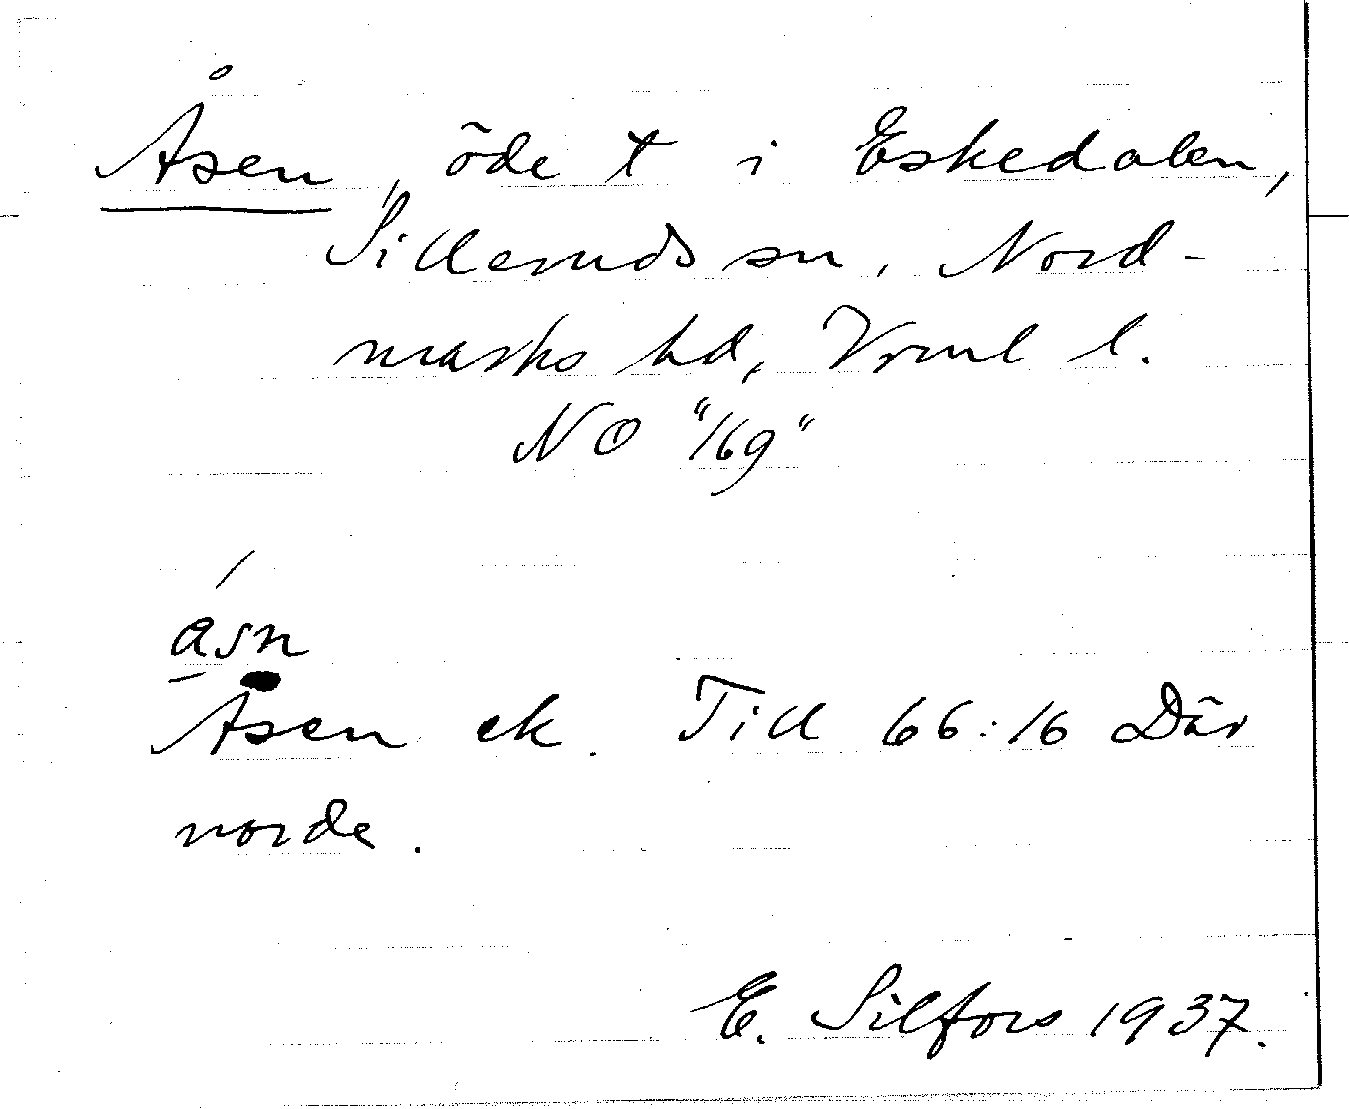 Åsen, öde t i Eskedalen,
Sillerudssn, Nord-
marks hd, Vrml l.
NO "169"
åsn
Åsen ek. Till 66:16 Där
norde.
E. Silfors 1937.